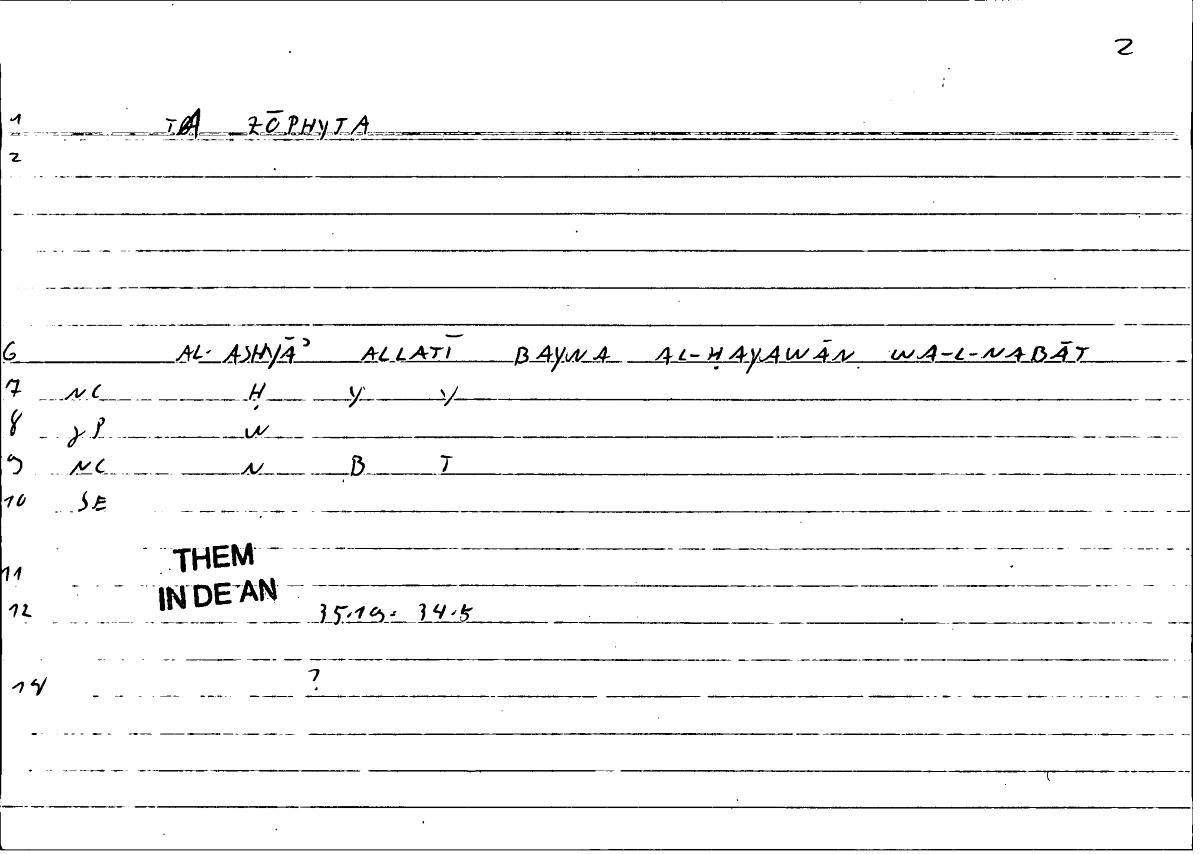 2
1 TA ZŌPHYTA
2
6 AL-ASHYĀʾ ALLATĪ BAYNA AL-ḤAYAWĀN WA-L-NABĀT
7 NC Ḥ Y Y
8 P W
9 NC N B T
10 SE
THEM
11
IN DE AN
12 35.19 = 34.5
14 ?